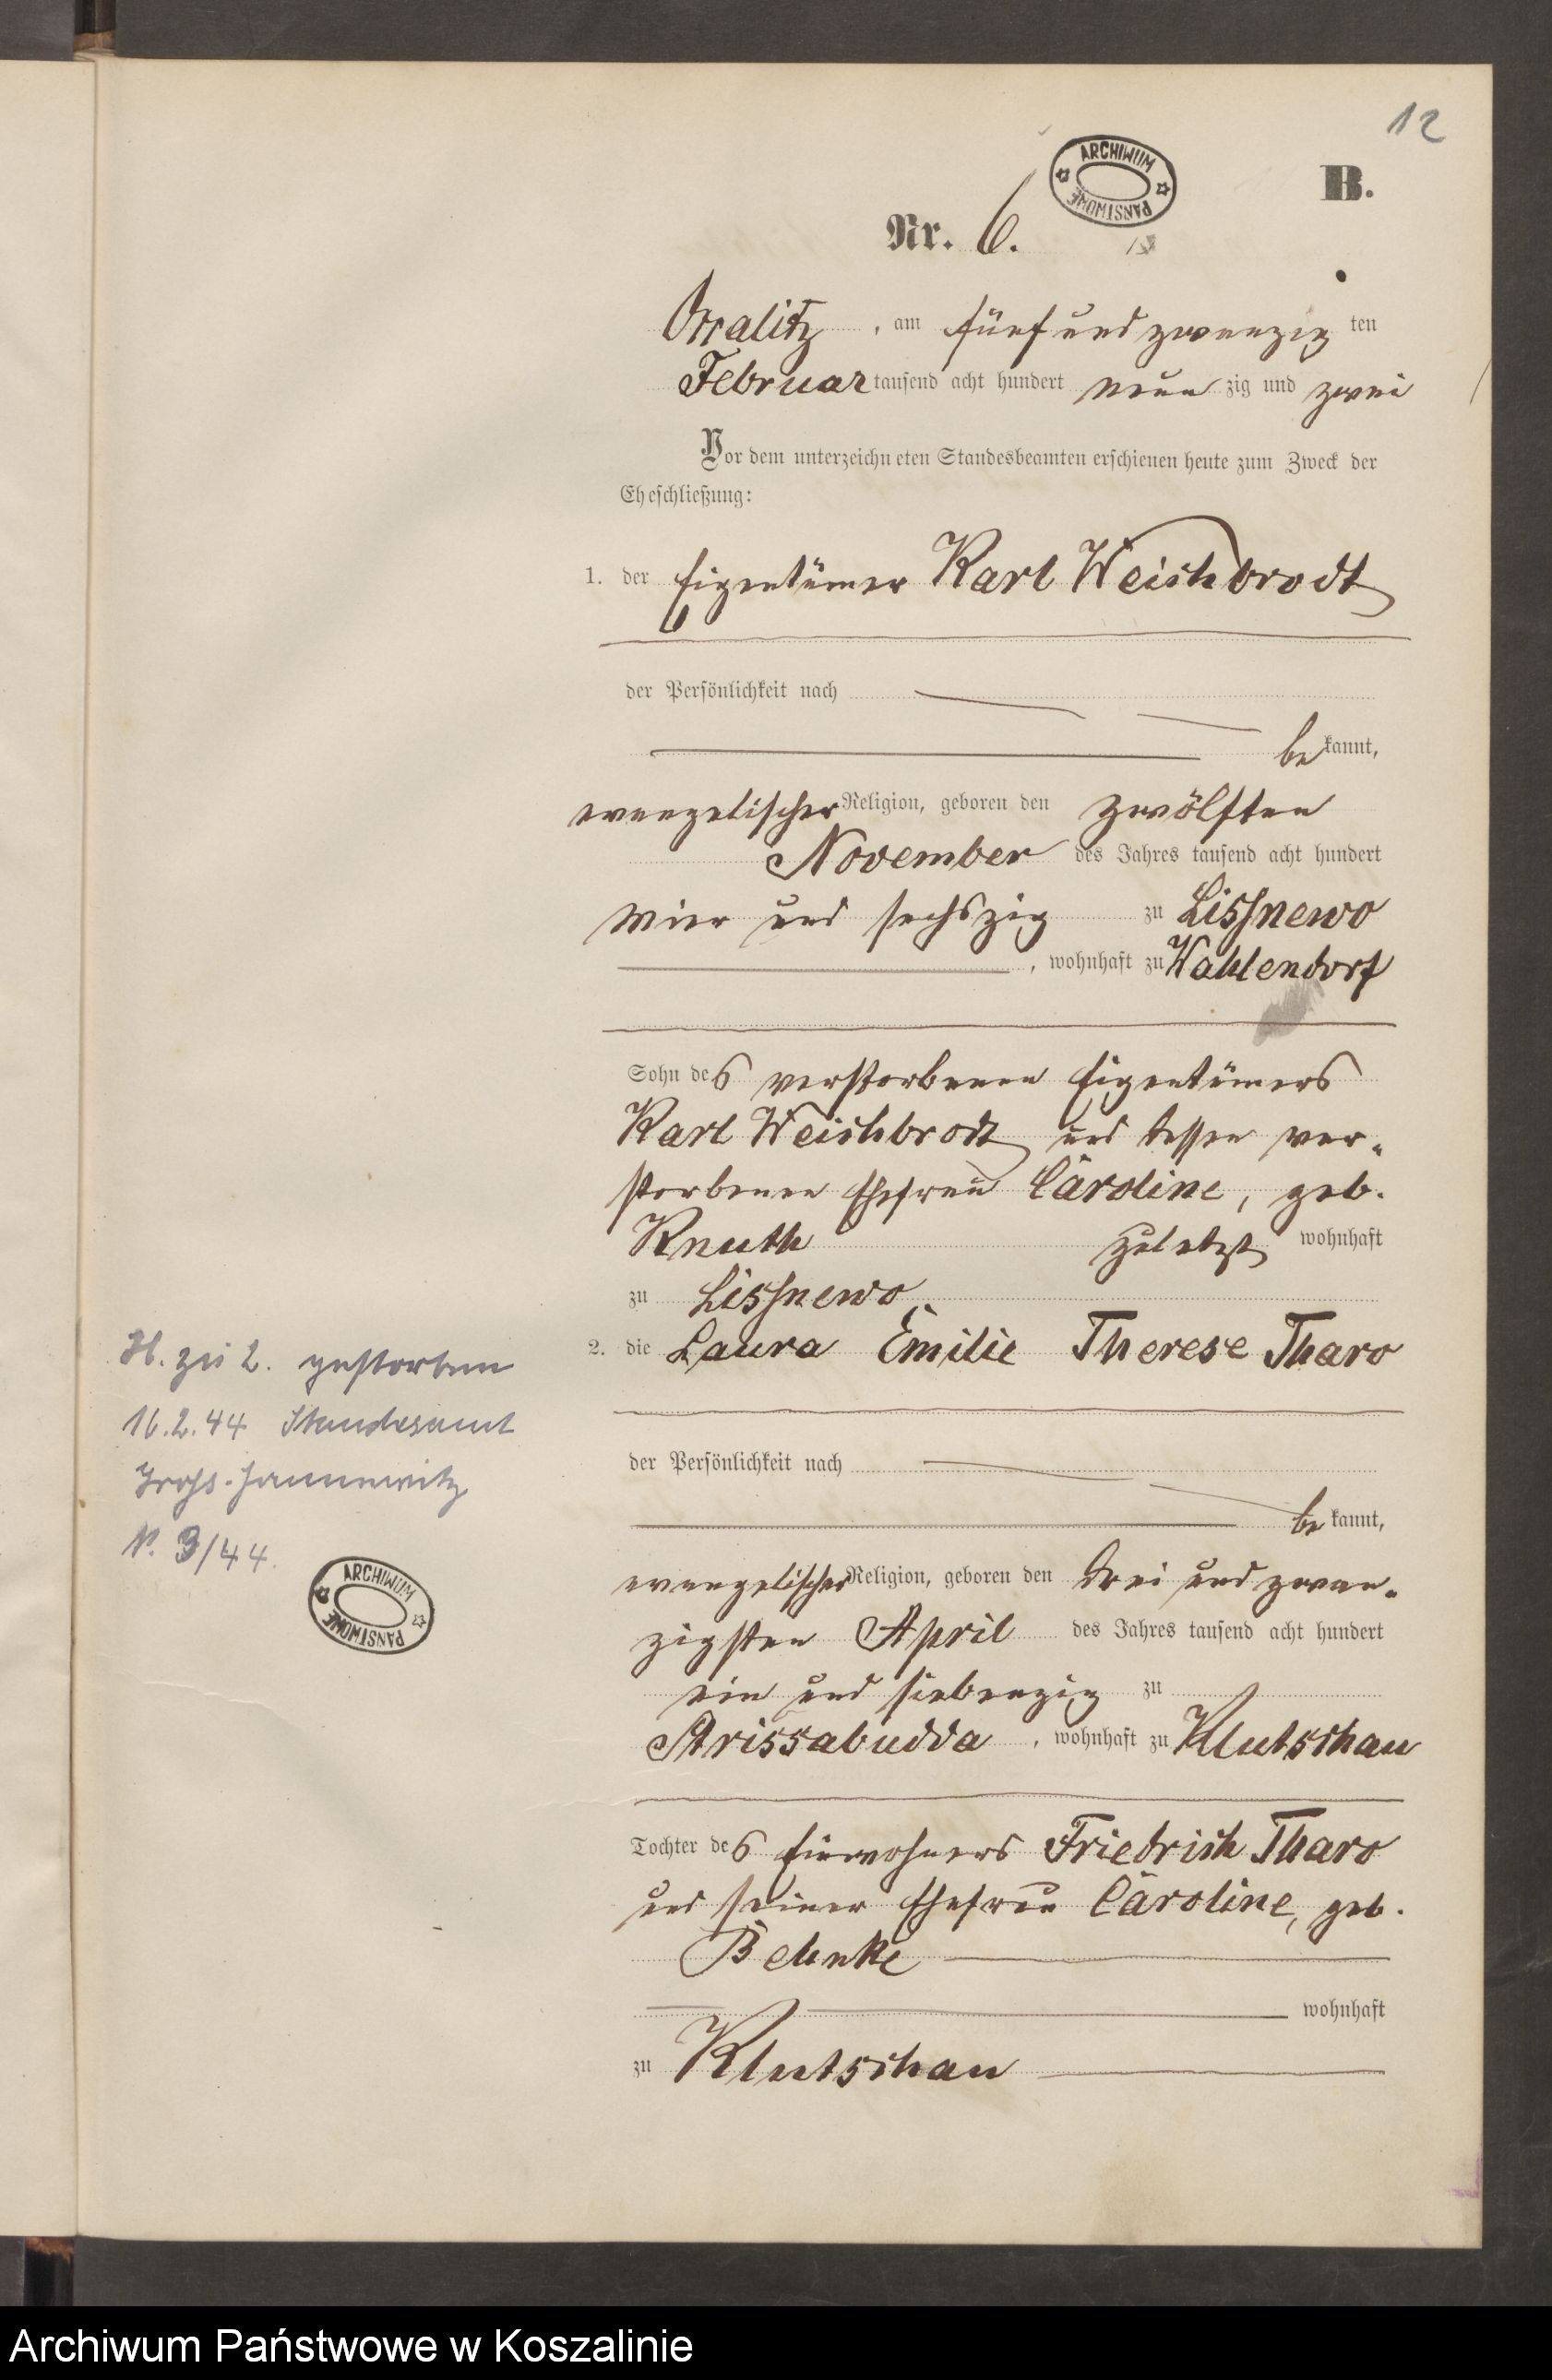 12
ARCHIWUM PAŃSTWOWE
B.
Nr. 6.
Occalitz, am fünf und zwanzig ten
Februar tausend acht hundert neun zig und zwei
Vor dem unterzeichneten Standesbeamten erschienen heute zum Zweck der
Eheschließung:
1. der Eigentümer Karl Weichbrodt
der Persönlichkeit nach
be kannt,
evangelischer Religion, geboren den zwölften
November des Jahres tausend acht hundert
vier und sechszig zu Lissnewo
, wohnhaft zu Wahlendorf
Sohn des verstorbenen Eigentümers
Karl Weichbrodt und dessen ver-
storbenen Ehefrau Caroline, geb.
Knuth zuletzt wohnhaft
zu Lissnewo
2. die Laura Emilie Therese Tharo
der Persönlichkeit nach
be kannt,
evangelischer Religion, geboren den drei und zwan-
zigsten April des Jahres tausend acht hundert
ein und siebenzig zu
Strissabudda, wohnhaft zu Klutschau
Tochter des Einwohners Friedrich Tharo
und seiner Ehefrau Caroline, geb.
Behnke
wohnhaft
zu Klutschau
H. zu 2. gestorben
16.2.44 Standesamt
Gross-Jannewitz
N. 3/44.
ARCHIWUM PAŃSTWOWE
Archiwum Państwowe w Koszalinie